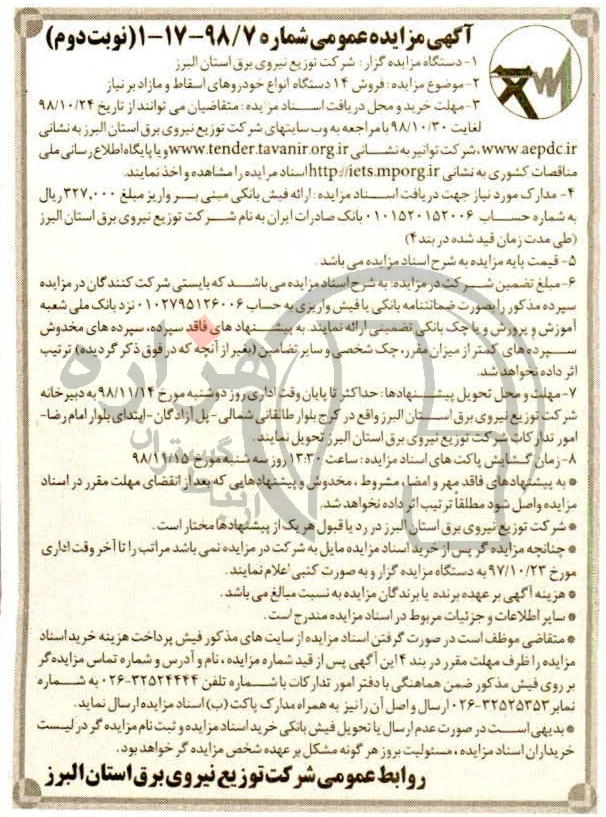 آگهی مزایده عمومی شماره ۹۸/۷-۱۷-۱ (نوبت دوم)
۱- دستگاه مزایده گزار: شرکت توزیع نیروی برق استان البرز
۲- موضوع مزایده: فروش ۱۴ دستگاه انواع خودروهای اسقاط و مازاد بر نیاز
۳- مهلت خرید و محل دریافت اسناد مزایده: متقاضیان می توانند از تاریخ ۹۸/۱۰/۲۴
لغایت ۹۸/۱۰/۳۰ با مراجعه به وب سایتهای شرکت توزیع نیروی برق استان البرز به نشانی
www.aepdc.ir، شرکت توانیر به نشانی www.tender.tavanir.org.ir و یا پایگاه اطلاع رسانی ملی
مناقصات کشوری به نشانی http://iets.mporg.ir اسناد مزایده را مشاهده و اخذ نمایند.
۴- مدارک مورد نیاز جهت دریافت اسناد مزایده: ارائه فیش بانکی مبنی بر واریز مبلغ ۳۲۷,۰۰۰ ریال
به شماره حساب ۰۱۰۱۵۲۰۱۵۲۰۰۶ بانک صادرات ایران به نام شرکت توزیع نیروی برق استان البرز
(طی مدت زمان قید شده در بند ۴)
۵- قیمت پایه مزایده به شرح اسناد مزایده می باشد.
۶- مبلغ تضمین شرکت در مزایده: به شرح اسناد مزایده می باشد که بایستی شرکت کنندگان در مزایده
سپرده مذکور را بصورت ضمانتنامه بانکی یا فیش واریزی به حساب ۰۱۰۲۷۹۵۱۲۶۰۰۶ نزد بانک ملی شعبه
آموزش و پرورش و یا چک بانکی تضمینی ارائه نمایند. به پیشنهاد های فاقد سپرده، سپرده های مخدوش
سپرده های کمتر از میزان مقرر، چک شخصی و سایر تضامین (بغیر از آنچه که در فوق ذکر گردید) ترتیب
اثر داده نخواهد شد.
۷- مهلت و محل تحویل پیشنهادها: حداکثر تا پایان وقت اداری روز دوشنبه مورخ ۹۸/۱۱/۱۴ به دبیرخانه
شرکت توزیع نیروی برق استان البرز واقع در کرج بلوار طالقانی شمالی- پل آزادگان- ابتدای بلوار امام رضا-
امور تدارکات شرکت توزیع نیروی برق استان البرز تحویل نمایند.
۸- زمان گشایش پاکت های اسناد مزایده: ساعت ۱۳:۳۰ روز سه شنبه مورخ ۹۸/۱۱/۱۵
* به پیشنهادهای فاقد مهر و امضا، مشروط، مخدوش و پیشنهادهایی که بعد از انقضای مهلت مقرر در اسناد
مزایده واصل شود مطلقاً ترتیب اثر داده نخواهد شد.
* شرکت توزیع نیروی برق استان البرز در رد یا قبول هر یک از پیشنهادها مختار است.
* چنانچه مزایده گر پس از خرید اسناد مزایده مایل به شرکت در مزایده نمی باشد مراتب را تا آخر وقت اداری
مورخ ۹۷/۱۰/۲۳ به دستگاه مزایده گزار و به صورت کتبی اعلام نمایند.
* هزینه آگهی بر عهده برنده یا برندگان مزایده به نسبت مبالغ می باشد.
* سایر اطلاعات و جزئیات مربوط در اسناد مزایده مندرج است.
* متقاضی موظف است در صورت گرفتن اسناد مزایده از سایت های مذکور فیش پرداخت هزینه خرید اسناد
مزایده را ظرف مهلت مقرر در بند ۴ این آگهی پس از قید شماره مزایده، نام و آدرس و شماره تماس مزایده گر
بر روی فیش مذکور ضمن هماهنگی با دفتر امور تدارکات با شماره تلفن ۳۲۵۲۴۴۴۴-۰۲۶ به شماره
نمابر ۳۲۵۲۵۳۵۳-۰۲۶ ارسال و اصل آن را نیز به همراه مدارک پاکت (ب) اسناد مزایده ارسال نماید.
* بدیهی است در صورت عدم ارسال یا تحویل فیش بانکی خرید اسناد مزایده و ثبت نام مزایده گر در لیست
خریداران اسناد مزایده، مسئولیت بروز هر گونه مشکل بر عهده شخص مزایده گر خواهد بود.
روابط عمومی شرکت توزیع نیروی برق استان البرز
هزاره